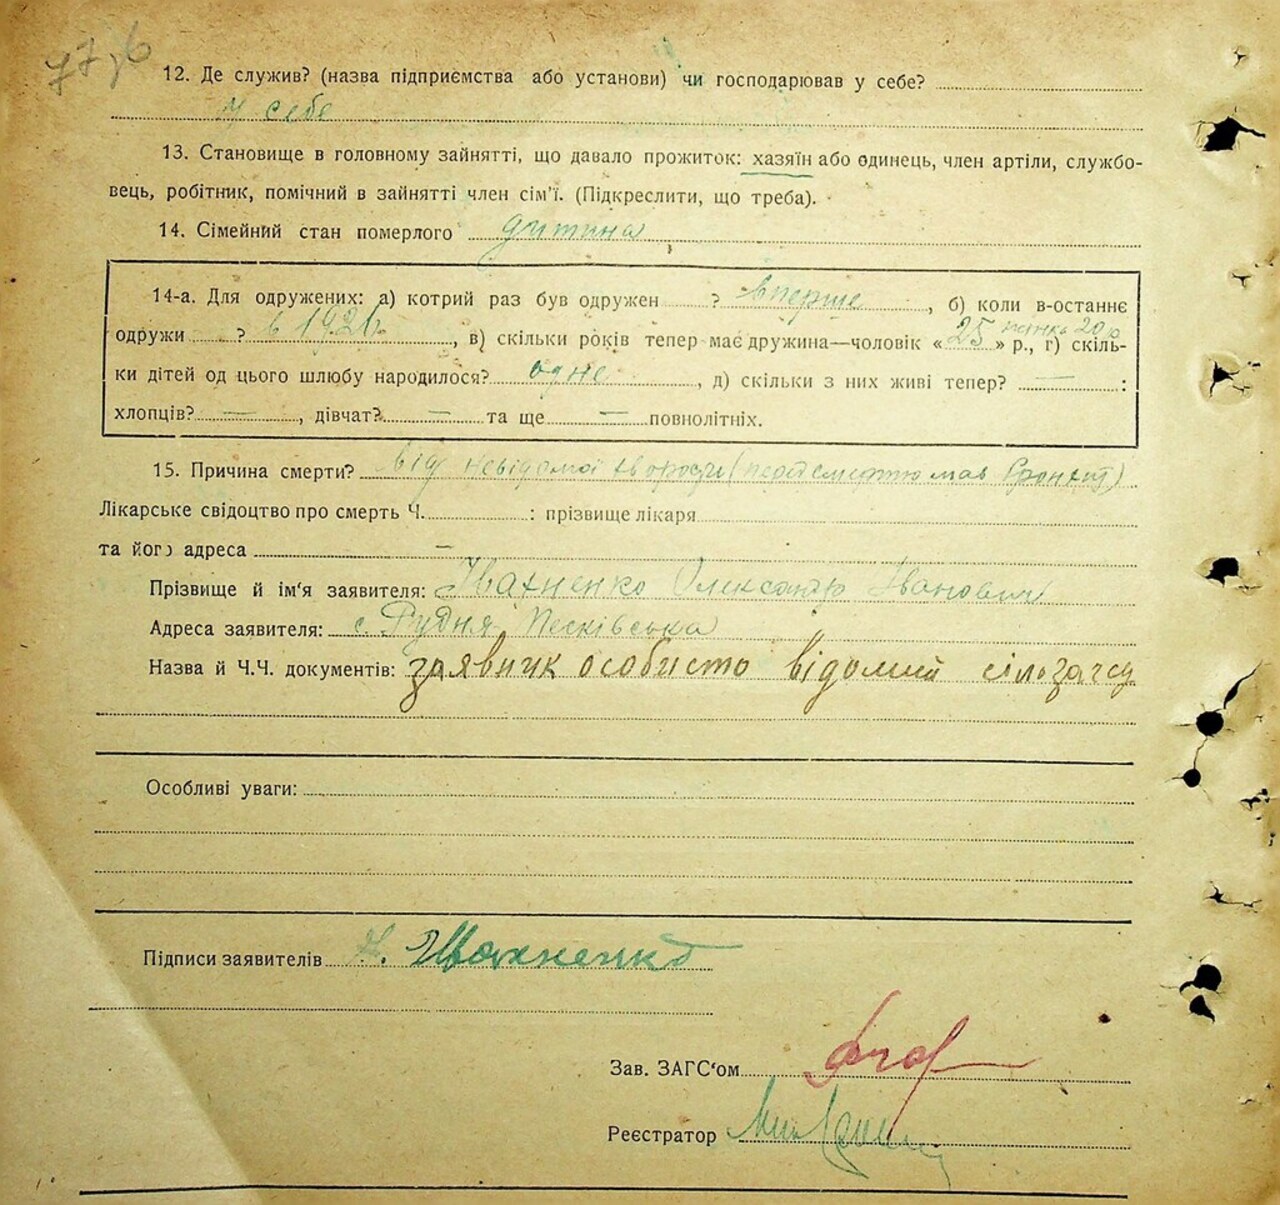 12. Де служив? (назва підприємства або установи) чи господарював у себе?
у себе
13. Становище в головному зайнятті, що давало прожиток: хазяїн або одинець, член артіли, службо-
вець, робітник, помічний в зайнятті член сім'ї. (Підкреслити, що треба).
14. Сімейний стан померлого дитина
14-а. Для одружених: а) котрий раз був одружен ? вперше, б) коли в-останнє
одружи ? в 192 р., в) скільки років тепер має дружина—чоловік «25» р., г) скіль-
ки дітей од цього шлюбу народилося? одне, д) скільки з них живі тепер? — :
хлопців? —, дівчат? — та ще — повнолітніх.
15. Причина смерти? від невідомої хвороби (перед смертю мав бронхит)
Лікарське свідоцтво про смерть Ч. : прізвище лікаря
та його адреса —
Прізвище й ім'я заявителя: Івахненко Олександр Іванович
Адреса заявителя: с. Рудня Песківська
Назва й Ч.Ч. документів: заявник особисто відомий сільзагсу
Особливі уваги:
Підписи заявителів Івахненко
Зав. ЗАГС'ом
Реєстратор